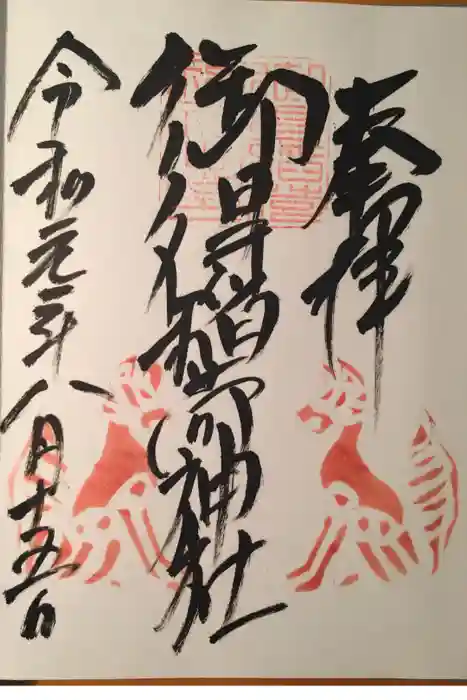 奉拝
御得稲荷神社
令和元年八月十五日